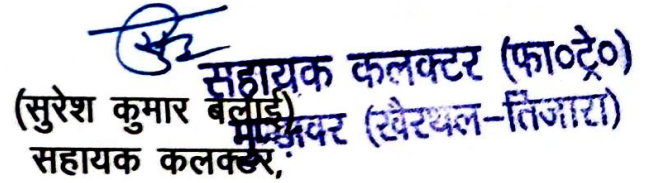 सहायक कलक्टर (फा०ट्रे०)
(सुरेश कुमार बलाई)
मुण्डावर (खैरथल-तिजारा)
सहायक कलक्टर,